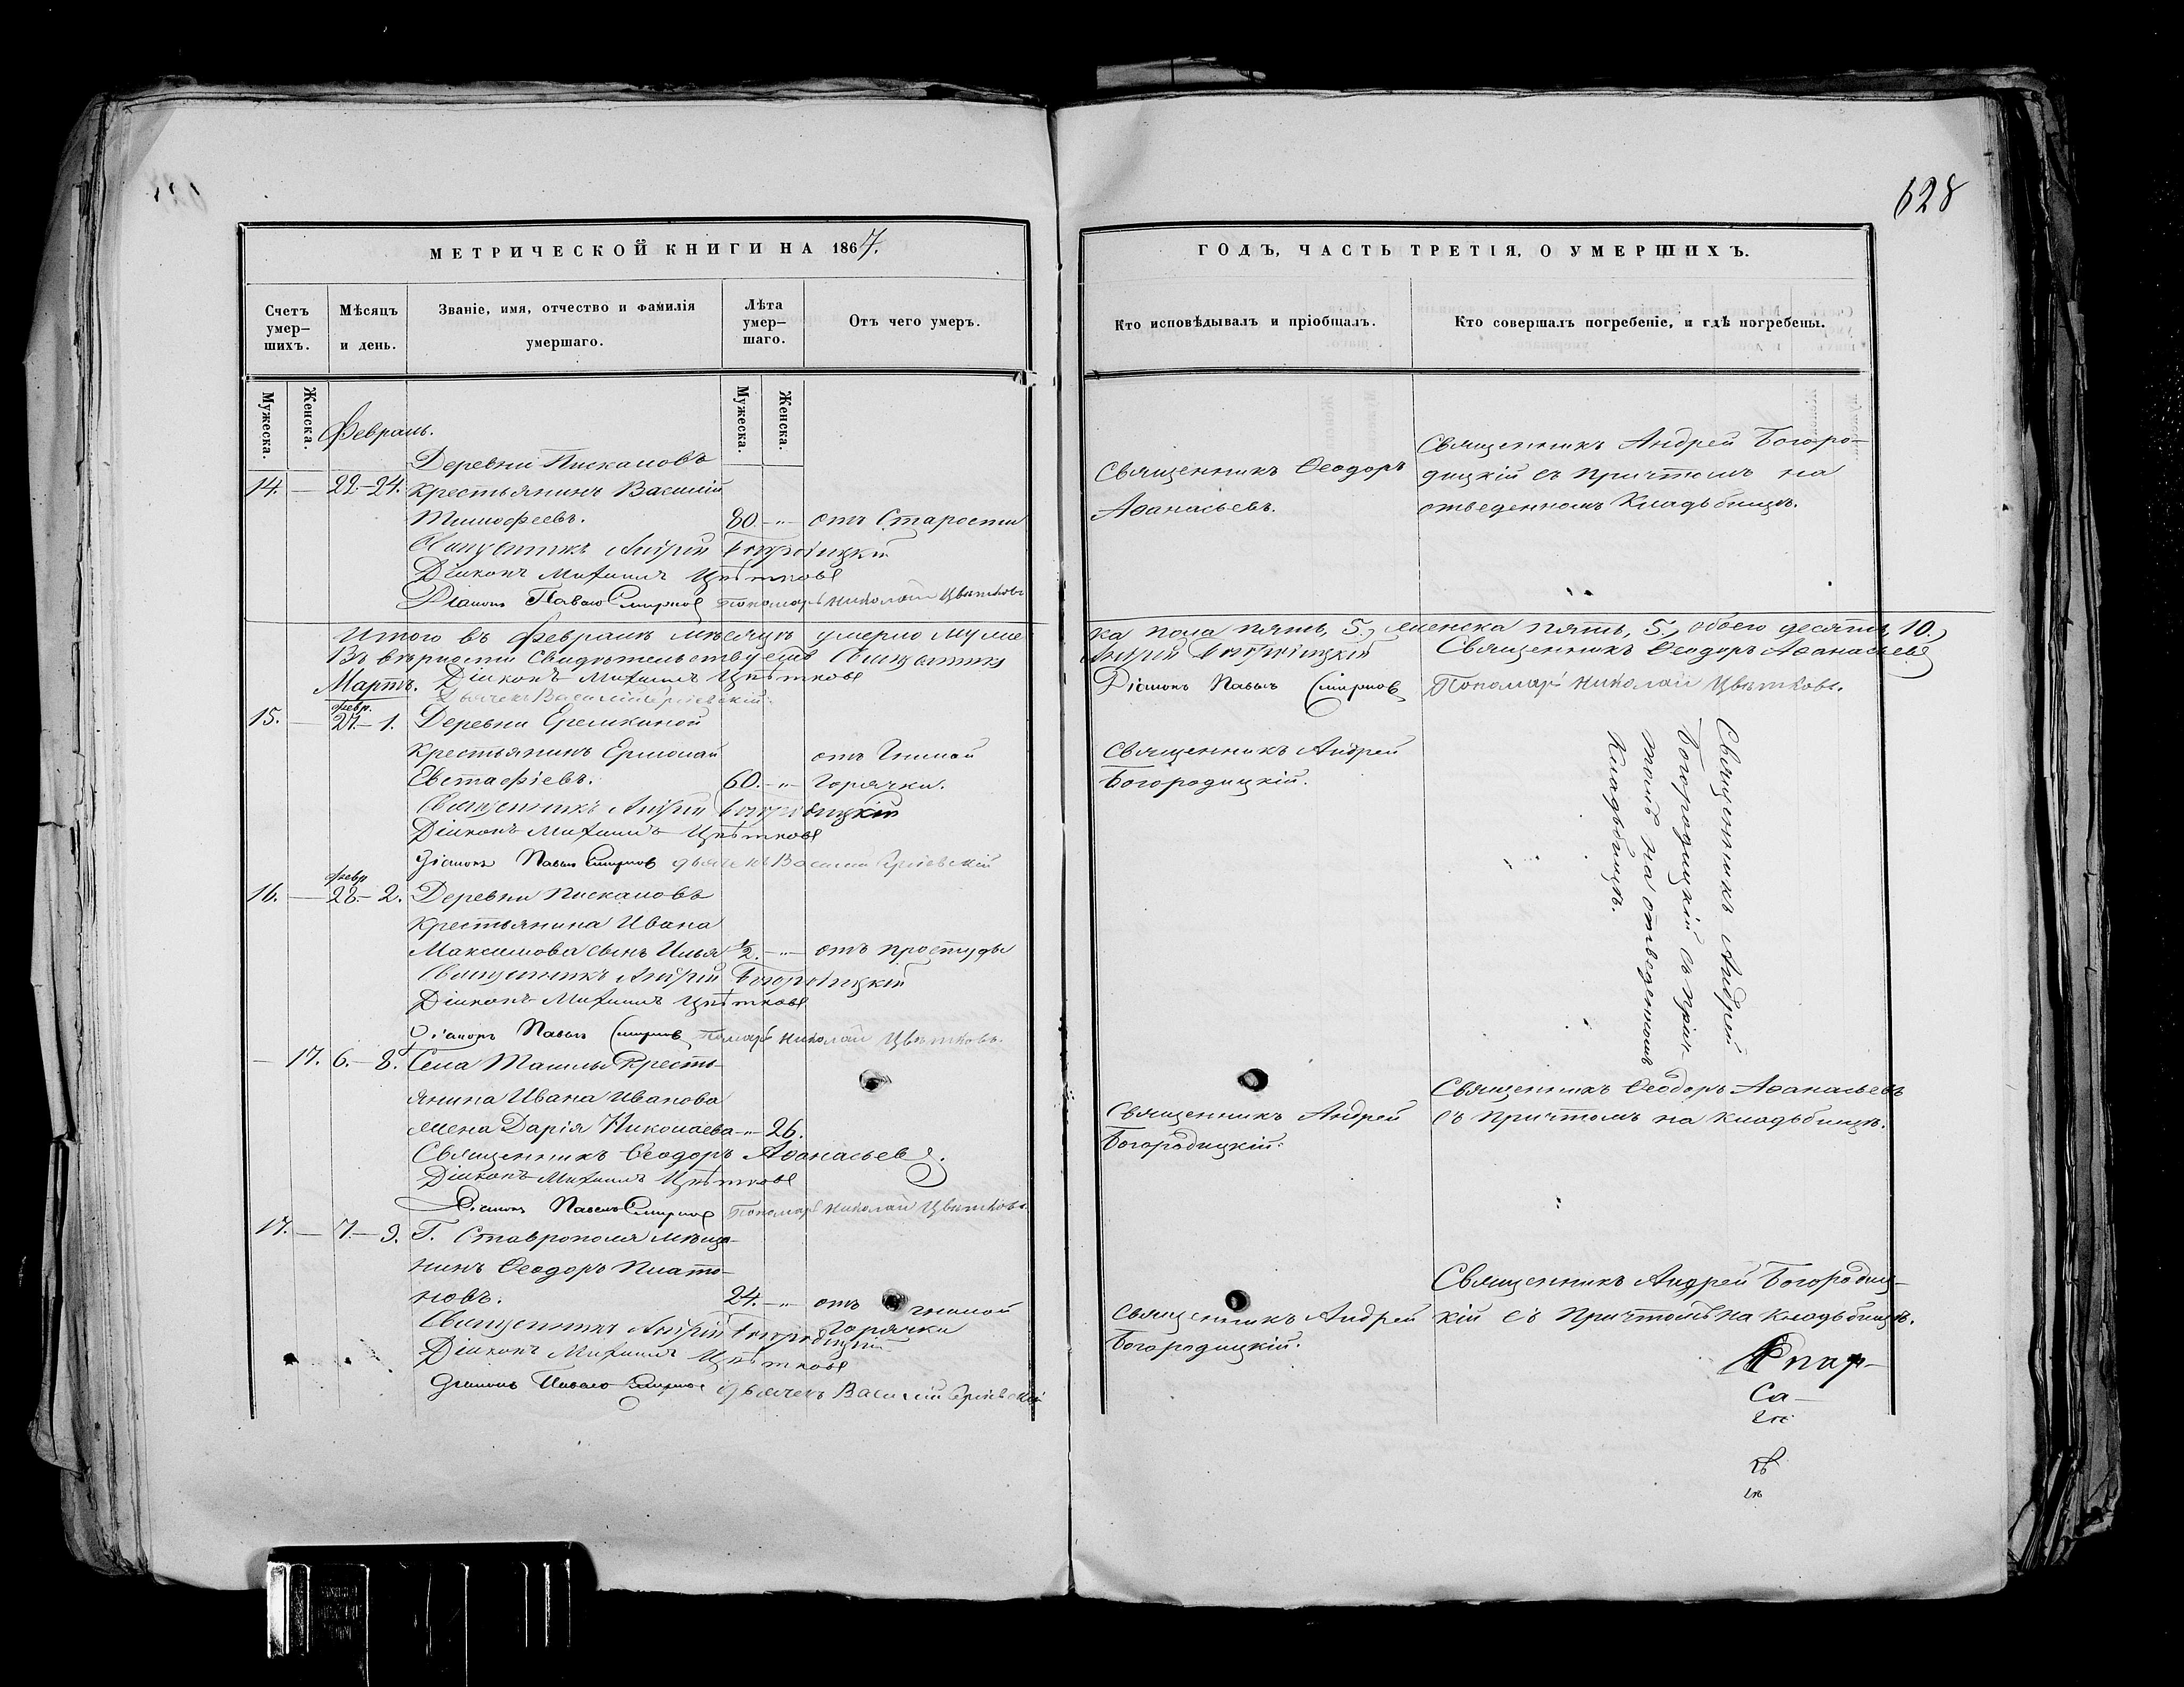 628
МЕТРИЧЕСКОЙ КНИГИ НА 1867.
Счетъ умер-
шихъ.
Мѣсяцъ
и день.
Званіе, имя, отчество и фамилія
умершаго.
Лѣта
умер-
шаго.
Отъ чего умеръ.
Мужеска.
Женска.
Мужеска.
Женска.
Февраль.
Деревни Пискаловъ
14. — 22.-24. крестьянинъ Василій
Тимофеевъ. 80.-"- отъ Старости
Священникъ Андрей Богородицкій
Діаконъ Михаилъ Цвѣтковъ
Діаконъ Павелъ Смирновъ Пономарь Николай Цвѣтковъ
Итого въ Февралѣ мѣсяцѣ умерло муже
Въ вѣрности свидѣтельствуемъ Священникъ
Мартъ. Діаконъ Михаилъ Цвѣтковъ
Дьячекъ Василій
февр.
15. — 27.- 1. Деревни Еремкиной
крестьянинъ Ермолай отъ Гнилой
Евстафіевъ. 60.-"- горячки.
Священникъ Андрей Богородицкій
Діаконъ Михаилъ Цвѣтковъ
Діаконъ Павелъ Смирновъ дьячекъ Василій
февр
16. — 28.- 2. Деревни Пискаловъ
крестьянина Ивана
Максимова сынъ Илья ½.-"- отъ простуды
Священникъ Андрей Богородицкій
Діаконъ Михаилъ Цвѣтковъ
Діаконъ Павелъ Смирновъ Николай Цвѣтковъ.
— 17. 6.- 8. Села Ташлы Кресть-
янина Ивана Иванова
жена Дарія Николаева-"- 26.
Священникъ Ѳеодоръ Аѳанасьевъ.
Діаконъ Михаилъ Цвѣтковъ
Діаконъ Павелъ Смирновъ Пономарь Николай Цвѣтковъ.
17. — 7.- 9. Г. Ставрополя мѣща-
нинъ Ѳеодоръ Плато-
новъ. 24.-"- отъ гнилой
горячки
Священникъ Андрей Богородицкій
Діаконъ Михаилъ Цвѣтковъ
Діаконъ Павелъ Смирновъ дьячекъ Василій
ГОДЪ, ЧАСТЬ ТРЕТІЯ, О УМЕРШИХЪ.
Кто исповѣдывалъ и пріобщалъ.
Кто совершалъ погребеніе, и гдѣ погребены.
Священникъ Ѳеодоръ
Аѳанасьевъ.
Священникъ Андрей Богоро-
дицкій съ причтомъ на
отведенномъ Кладьбищѣ.
ка пола пять, 5., женска пять, 5., обоего десять, 10.
Андрей Богородицкій Священникъ Ѳеодоръ Аѳанасьевъ
Діаконъ Павелъ Смирновъ Пономарь Николай Цвѣтковъ.
Священникъ Андрей
Богородицкій.
Священникъ Андрей
Богородицкій съ прич-
томъ на отведенномъ
Кладьбищѣ.
Священникъ Андрей
Богородицкій.
Священникъ Ѳеодоръ Аѳанасьевъ
съ причтомъ на кладьбищѣ.
Священникъ Андрей
Богородицкій.
Священникъ Андрей Богородиц-
кій съ Причтомъ на кладьбищѣ.